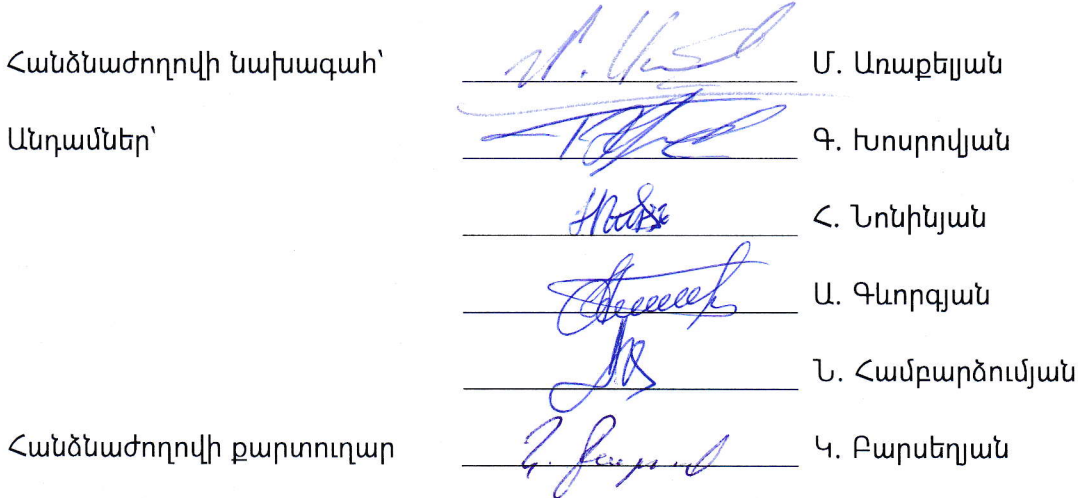 Հանձնաժողովի նախագահ՝ Մ. Առաքելյան
Անդամներ՝ Գ. Խոսրովյան
Հ. Նոնինյան
Ա. Գևորգյան
Ն. Համբարձումյան
Հանձնաժողովի քարտուղար Կ. Բարսեղյան